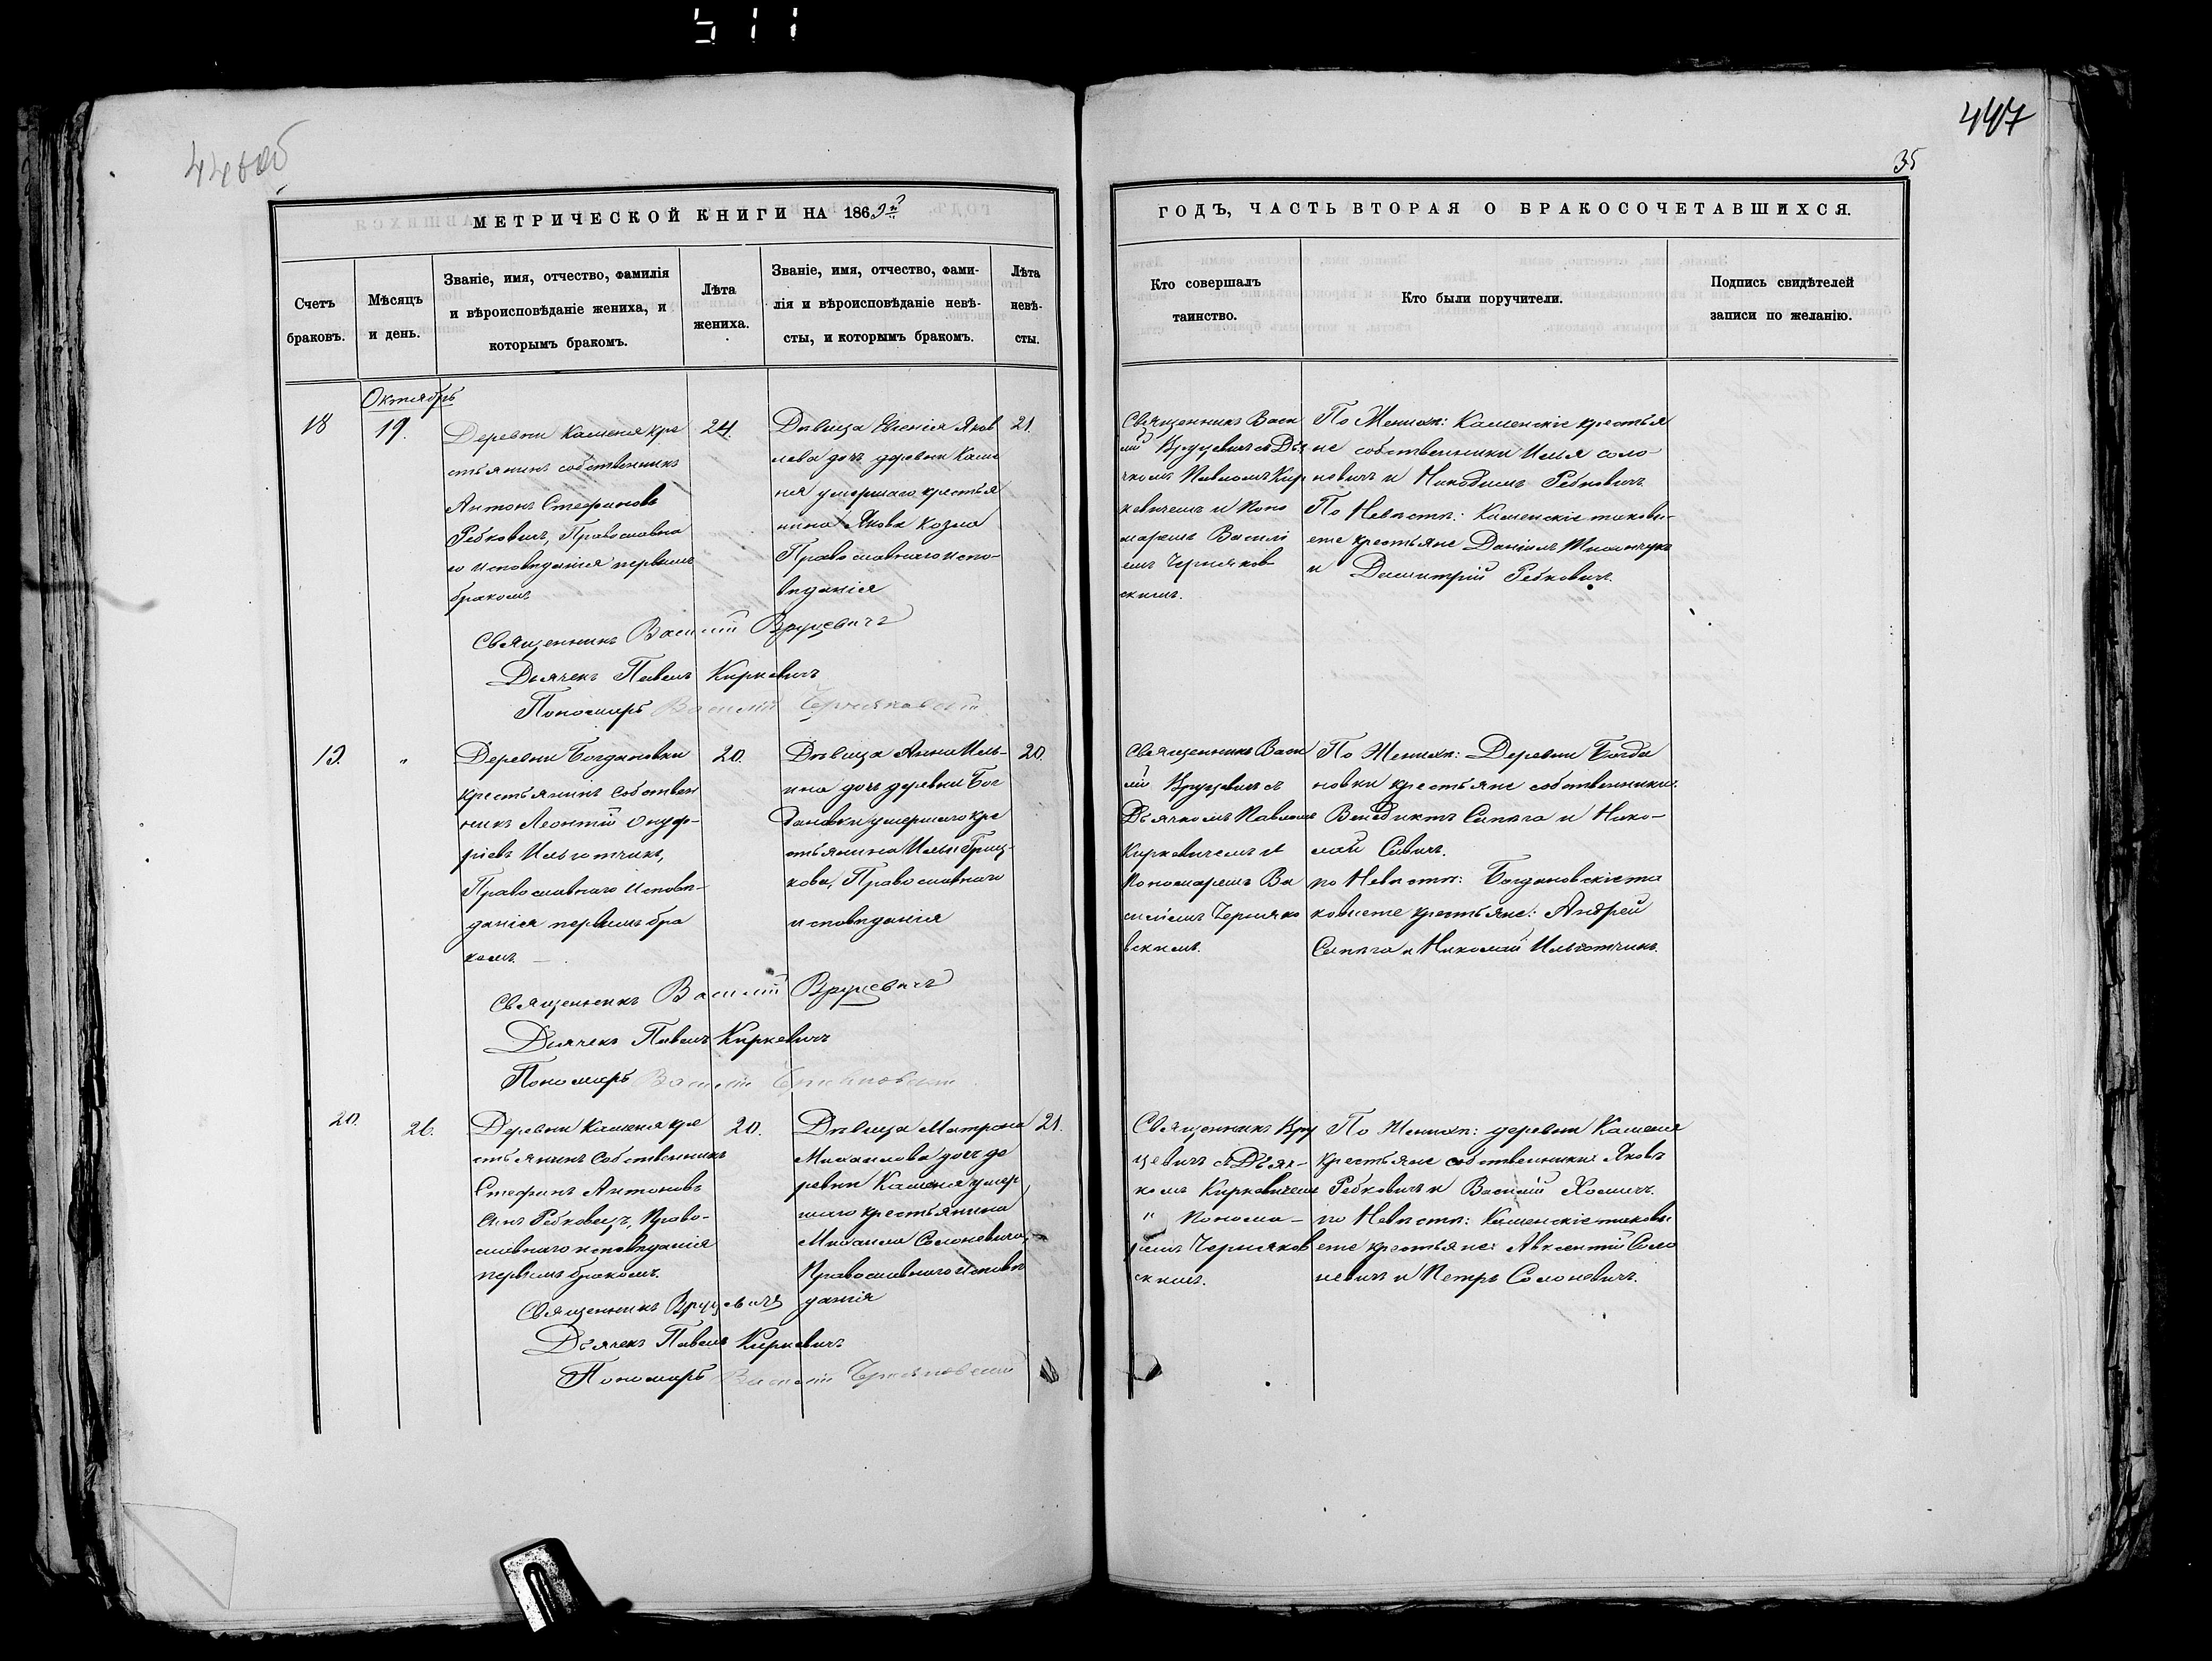 511
447
35
МЕТРИЧЕСКОЙ КНИГИ НА 1869й
Счетъ браковъ.
Мѣсяцъ и день.
Званіе, имя, отчество, фамилія
и вѣроисповѣданіе жениха, и
которымъ бракомъ.
Лѣта жениха.
Званіе, имя, отчество, фами-
лія и вѣроисповѣданіе невѣ-
сты, и которымъ бракомъ.
Лѣта невѣ-
сты.
Октябрь
18
19.
Деревни Каменя кре
стьянинъ собственникъ
Антонъ Стефановъ
Ребковичъ, Православна
го исповѣданія первымъ
бракомъ
24.
Дѣвица Евгенія Яков
лева дочь деревни Каме
ня умершаго крестья
нина Якова Козла
Православнаго испо-
вѣданія
21.
Священникъ Василій Вруцевичъ
Дьячекъ Павелъ Киркевичъ
Пономарь Василій Черняковскій
19.
"
Деревни Богдановки
крестьянинъ собствен
никъ Леонтій Онуф-
ріевъ Ильготчикъ,
Православнаго исповѣ-
данія первымъ бра
комъ. —
20.
Дѣвица Анна Иль-
ина дочь деревни Бог
дановки умершаго кре
стьянина Ильи Гриц-
кова, Православнаго
исповѣданія
20.
Священникъ Василій Вруцевичъ
Дьячекъ Павелъ Киркевичъ
Пономарь Василій Черняковскій
20.
26.
Деревни Каменя кре
стьянинъ собственникъ
Стефанъ Антоновъ
сынъ Ребковецъ, Право-
славнаго исповѣданія
первымъ бракомъ.
20.
Дѣвица Матрона
Михаилова дочь де
ревни Каменя умер
шаго крестьянина
Михаила Солоневича,
Православнаго исповѣ
данія
21.
Священникъ Вруцевичъ
Дьячекъ Павелъ Киркевичъ
Пономарь Василій Черняковскій
ГОДЪ, ЧАСТЬ ВТОРАЯ О БРАКОСОЧЕТАВШИХСЯ.
Кто совершалъ
таинство.
Кто были поручители.
Подпись свидѣтелей
записи по желанію.
Священникъ Васи
лій Вруцевичъ съ Дья
чкомъ Павломъ Кир
кевичемъ и Поно
маремъ Василі
емъ Черняков
скимъ.
По Женихѣ: Каменскіе крестья
не собственники Илья Соло-
невичъ и Никодимъ Ребковичъ
По Невѣстѣ: Каменскіе таковы-
еже крестьяне Даніилъ
и Димитрій Ребковичъ.
Священникъ Васи
лій Вруцевичъ съ
Дьячкомъ Павломъ
Киркевичемъ и
Пономаремъ Ва
силіемъ Черняко
вскимъ.
По Женихѣ: Деревни Богда
новки крестьяне собственники:
Венедиктъ Сапѣга и Нико-
лай Савичъ.
по Невѣстѣ: Богдановскіе та
ковыеже крестьяне: Андрей
Сапѣга и Николай Ильготчикъ.
Священникъ Вру
цевичъ съ Дьяч-
комъ Киркевичемъ
" Понома-
ремъ Черняков
скимъ.
По Женихѣ: деревни Каменя
крестьяне собственники Яковъ
Ребковичъ и Василій Хомичъ.
по Невѣстѣ: Каменскіе таковы
еже крестьяне: Авксентій Соло
невичъ и Петръ Солоневичъ.